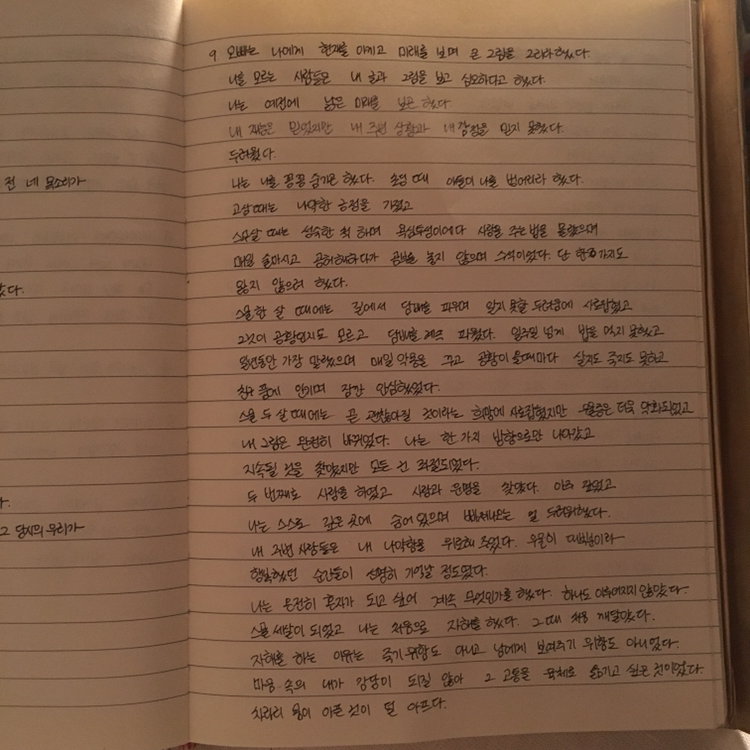 전 네 목소리가
았다.
다.
그 당시의 우리가
9 오빠는 나에게 현재를 아끼고 미래를 보며 큰 그림을 그리라 했다.
나를 모르는 사람들은 내 글과 그림을 보고 심오하다고 했다.
나는 예전에 낡은 미래를 보곤 했다.
내 재능은 믿었지만 내 주변 상황과 내 감정을 믿지 못했다.
두려웠다.
나는 나를 꽁꽁 숨기곤 했다. 초딩 때 아들이 나를 벙어리라 했다.
고삼 때는 나약한 긍정을 가졌고
스무살 때는 성숙한 척 하며 욕심쟁이에다 사랑을 주는 법을 몰랐으며
매일 술마시고 공허해하다가 공부를 놓지 않으며 수석이었다. 단 한가지도
잃지 않으려 했다.
스물한 살 때에는 길에서 담배를 피우며 알지 못할 두려움에 사로잡혔고
그것이 공황인지도 모르고 담배를 계속 피웠다. 일주일 넘게 밥을 먹지 못했고
일년동안 가장 말랐으며 매일 악몽을 꾸고 공황이 올때마다 살지도 죽지도 못하고
친구 품에 안기며 잠깐 안심했었다.
스물 두 살 때에는 곧 괜찮아질 것이라는 희망에 사로잡혔지만 우울증은 더욱 악화되었고
내 그림은 완전히 바뀌었다. 나는 한 가지 방향으로만 나아갔고
지속될 것을 찾았지만 모든 건 좌절되었다.
두 번째로 사랑을 하였고 사랑과 운명을 찾았다. 아주 잘했고
나는 스스로 깊은 곳에 숨어 있으며 빠져나오는 걸 두려워했다.
내 저번 사람들은 내 나약함을 위로해 주었다. 우울이 대부분이라
행복했던 순간들이 선명히 기억날 정도였다.
나는 온전히 혼자가 되고 싶어 계속 무엇인가를 했다. 하나도 이루어지지 않았다.
스물 세살이 되었고 나는 처음으로 자해를 했다. 그 때 처음 깨달았다.
자해를 하는 이유는 죽기 위함도 아니고 남에게 보여주기 위함도 아니었다.
마음 속의 내가 감당이 되질 않아 그 고통을 육체로 옮기고 싶은 것이었다.
차라리 몸이 아픈 것이 덜 아프다.